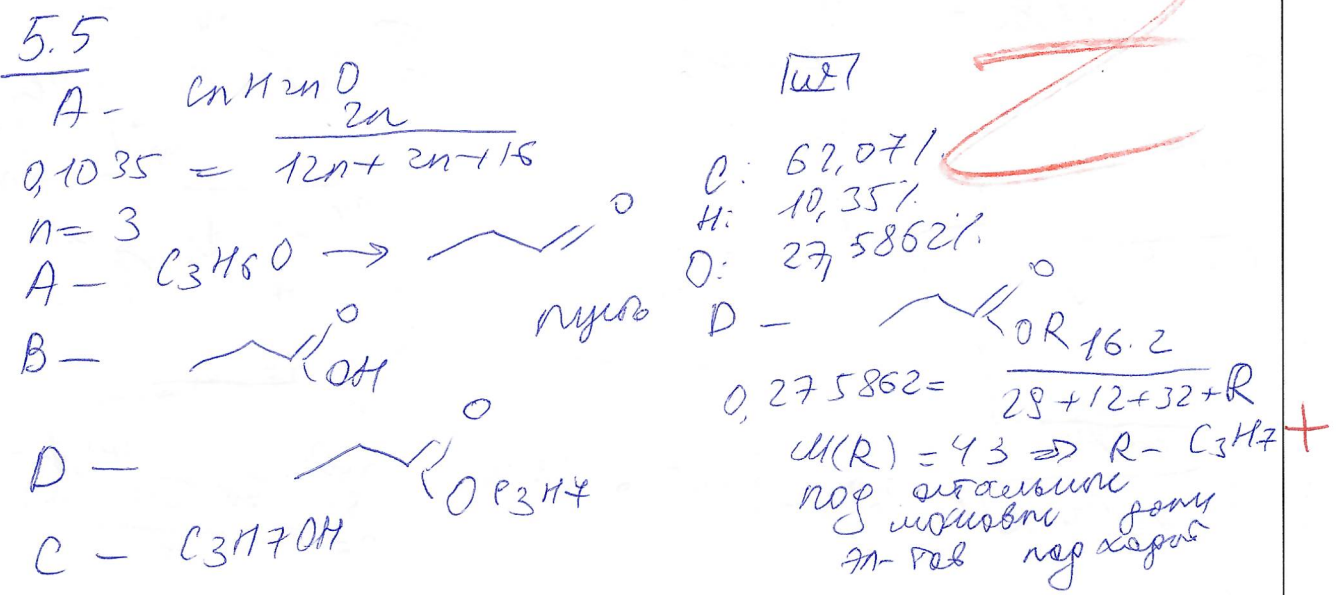 5.5
A – CnH2nO
0,1035 = 2n / 12n + 2n + 16
n = 3
A – C3H6O → O
B – O OH
D – O OC3H7
C – C3H7OH
C: 62,07%
H: 10,35%
O: 27,5862%
пусть D – O OR
0,275862 = 16·2 / 29+12+32+R
M(R) = 43 ⇒ R – C3H7
под остальные
массовые доли
эл-тов подходит
+